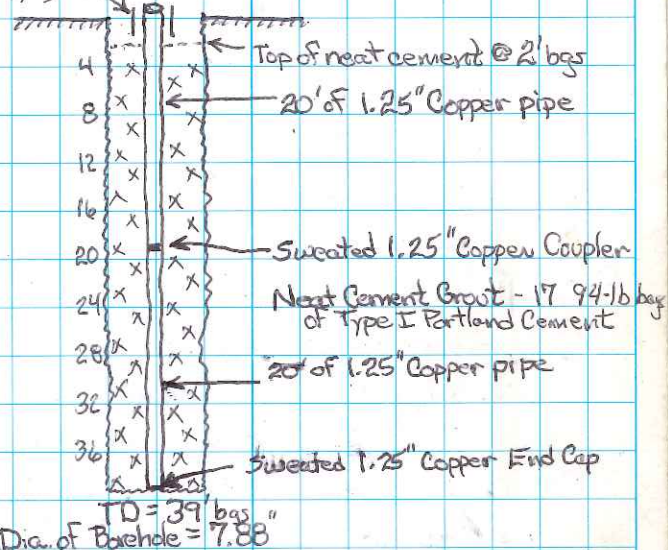 Top of neat cement @ 2' bgs
4
20' of 1.25" Copper pipe
8
12
16
Sweated 1.25" Copper Coupler
20
Neat Cement Grout - 17 94-lb bag
24
of Type I Portland Cement
28
20' of 1.25" Copper pipe
32
36
Sweated 1.25" Copper End Cap
TD = 39' bgs
Dia. of Borehole = 7.88"